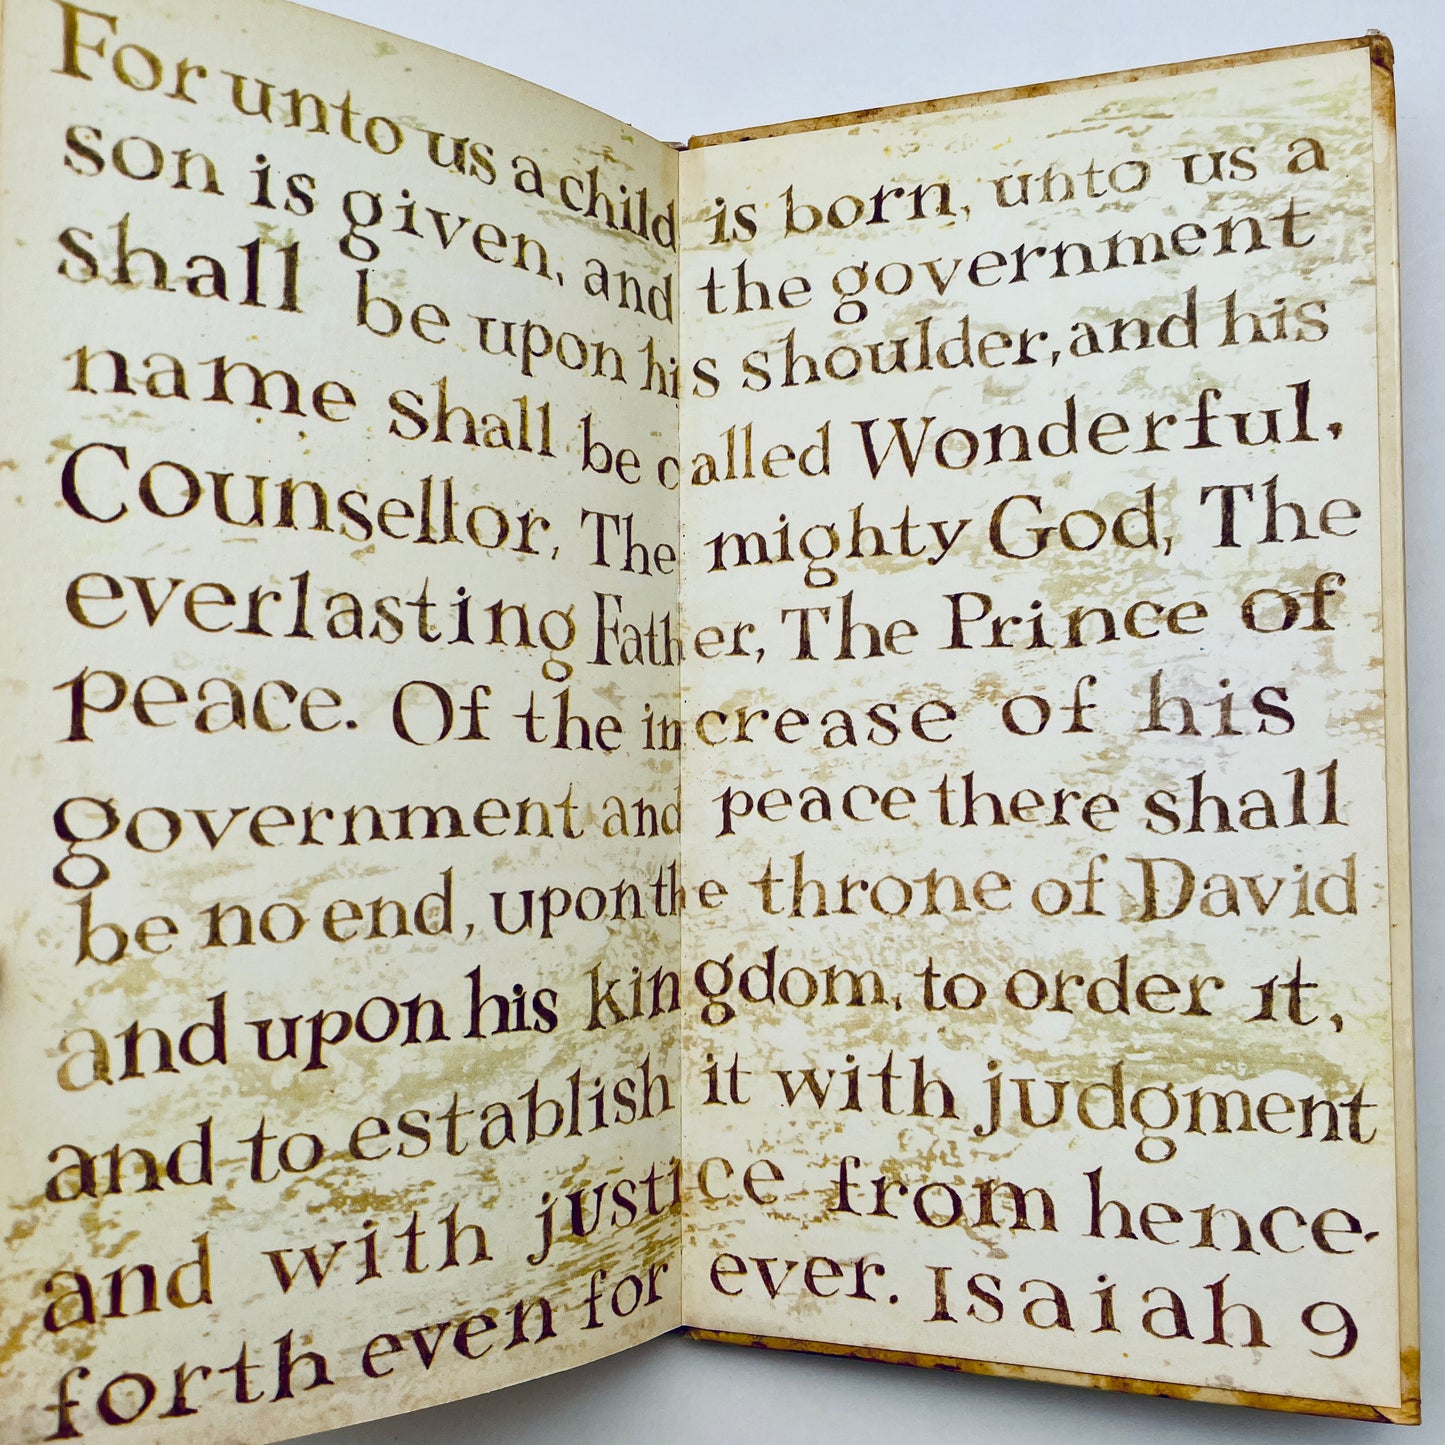 For unto us a child is born, unto us a
son is given, and the government
shall be upon his shoulder, and his
name shall be called Wonderful,
Counsellor, The mighty God, The
everlasting Father, The Prince of
peace. Of the increase of his
government and peace there shall
be no end, upon the throne of David
and upon his kingdom, to order it,
and to establish it with judgment
and with justice from hence-
forth even for ever. Isaiah 9